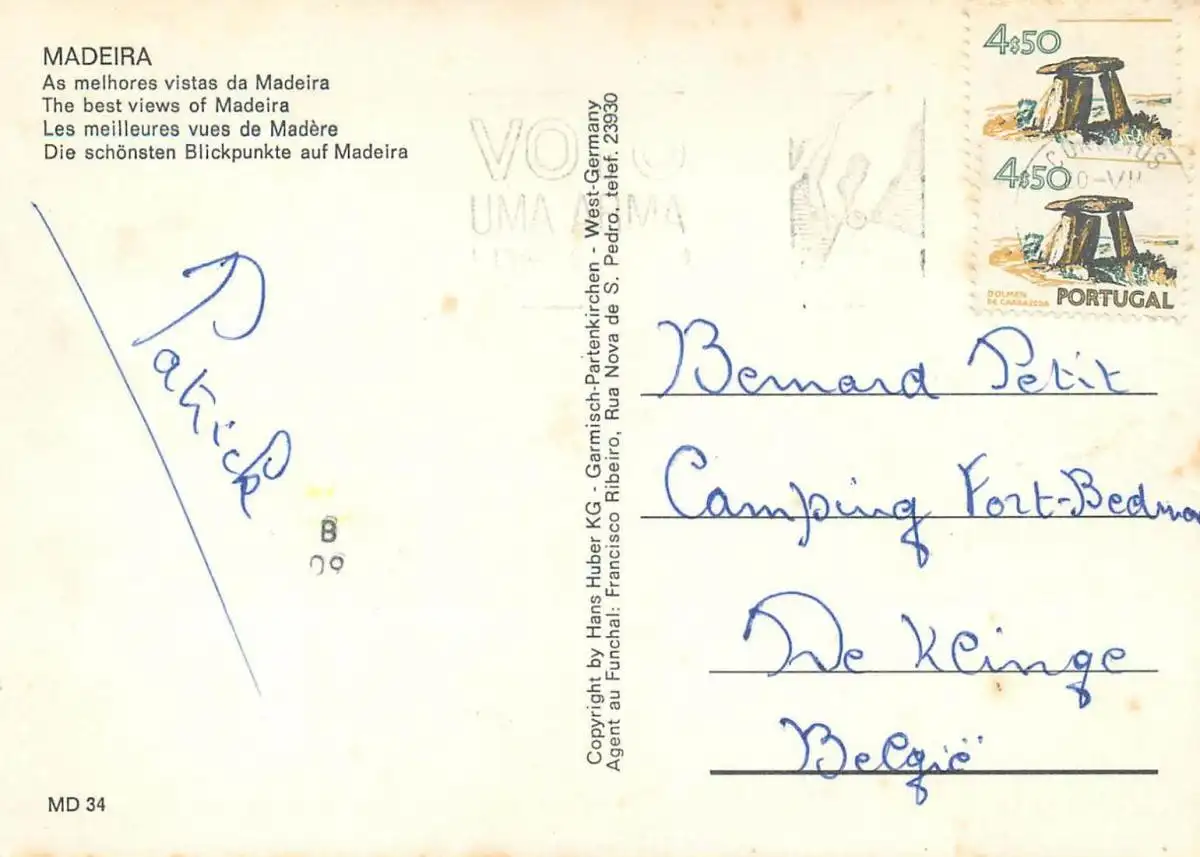 MADEIRA
As melhores vistas da Madeira
The best views of Madeira
Les meilleures vues de Madère
Die schönsten Blickpunkte auf Madeira
Patrick
B
09
MD 34
Copyright by Hans Huber KG - Garmisch-Partenkirchen - West-Germany
Agent au Funchal: Francisco Ribeiro, Rua Nova de S. Pedro, telef. 23930
UMA ARMA
4$50
4$50
DOLMEN
DE CARRAZEDA
PORTUGAL
Bernard Petit
Camping Fort-Bedmar
De Klinge
België